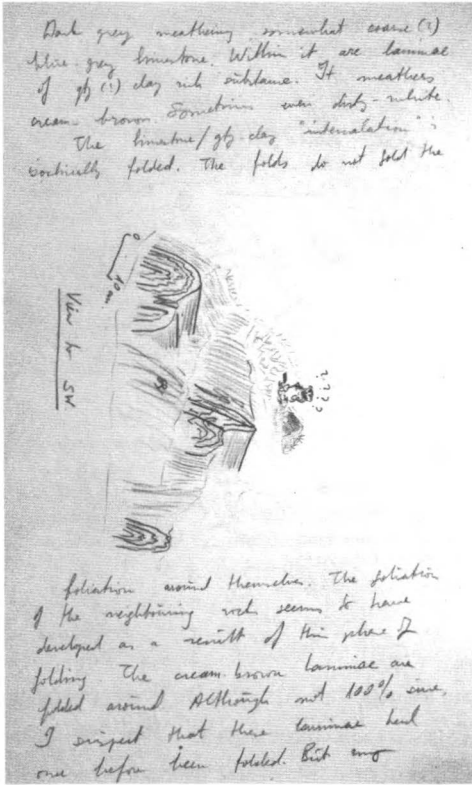 Dark grey weathering somewhat coarse (?)
blue-grey limestone. Within it are laminae
of qtz (?) clay rich substance. It weathers
cream-brown. Sometimes even dirty-white.
The limestone/qtz-clay "intercalation" is
folded. The folds do not fold the
0
10 m
View to SW
? ? ? ?
foliation around themselves. The foliation
of the neighbouring rock seems to have
developed as a result of this phase of
folding The cream-brown laminae are
folded around Although not 100% sure,
I suspect that these laminae had
once before been folded. But